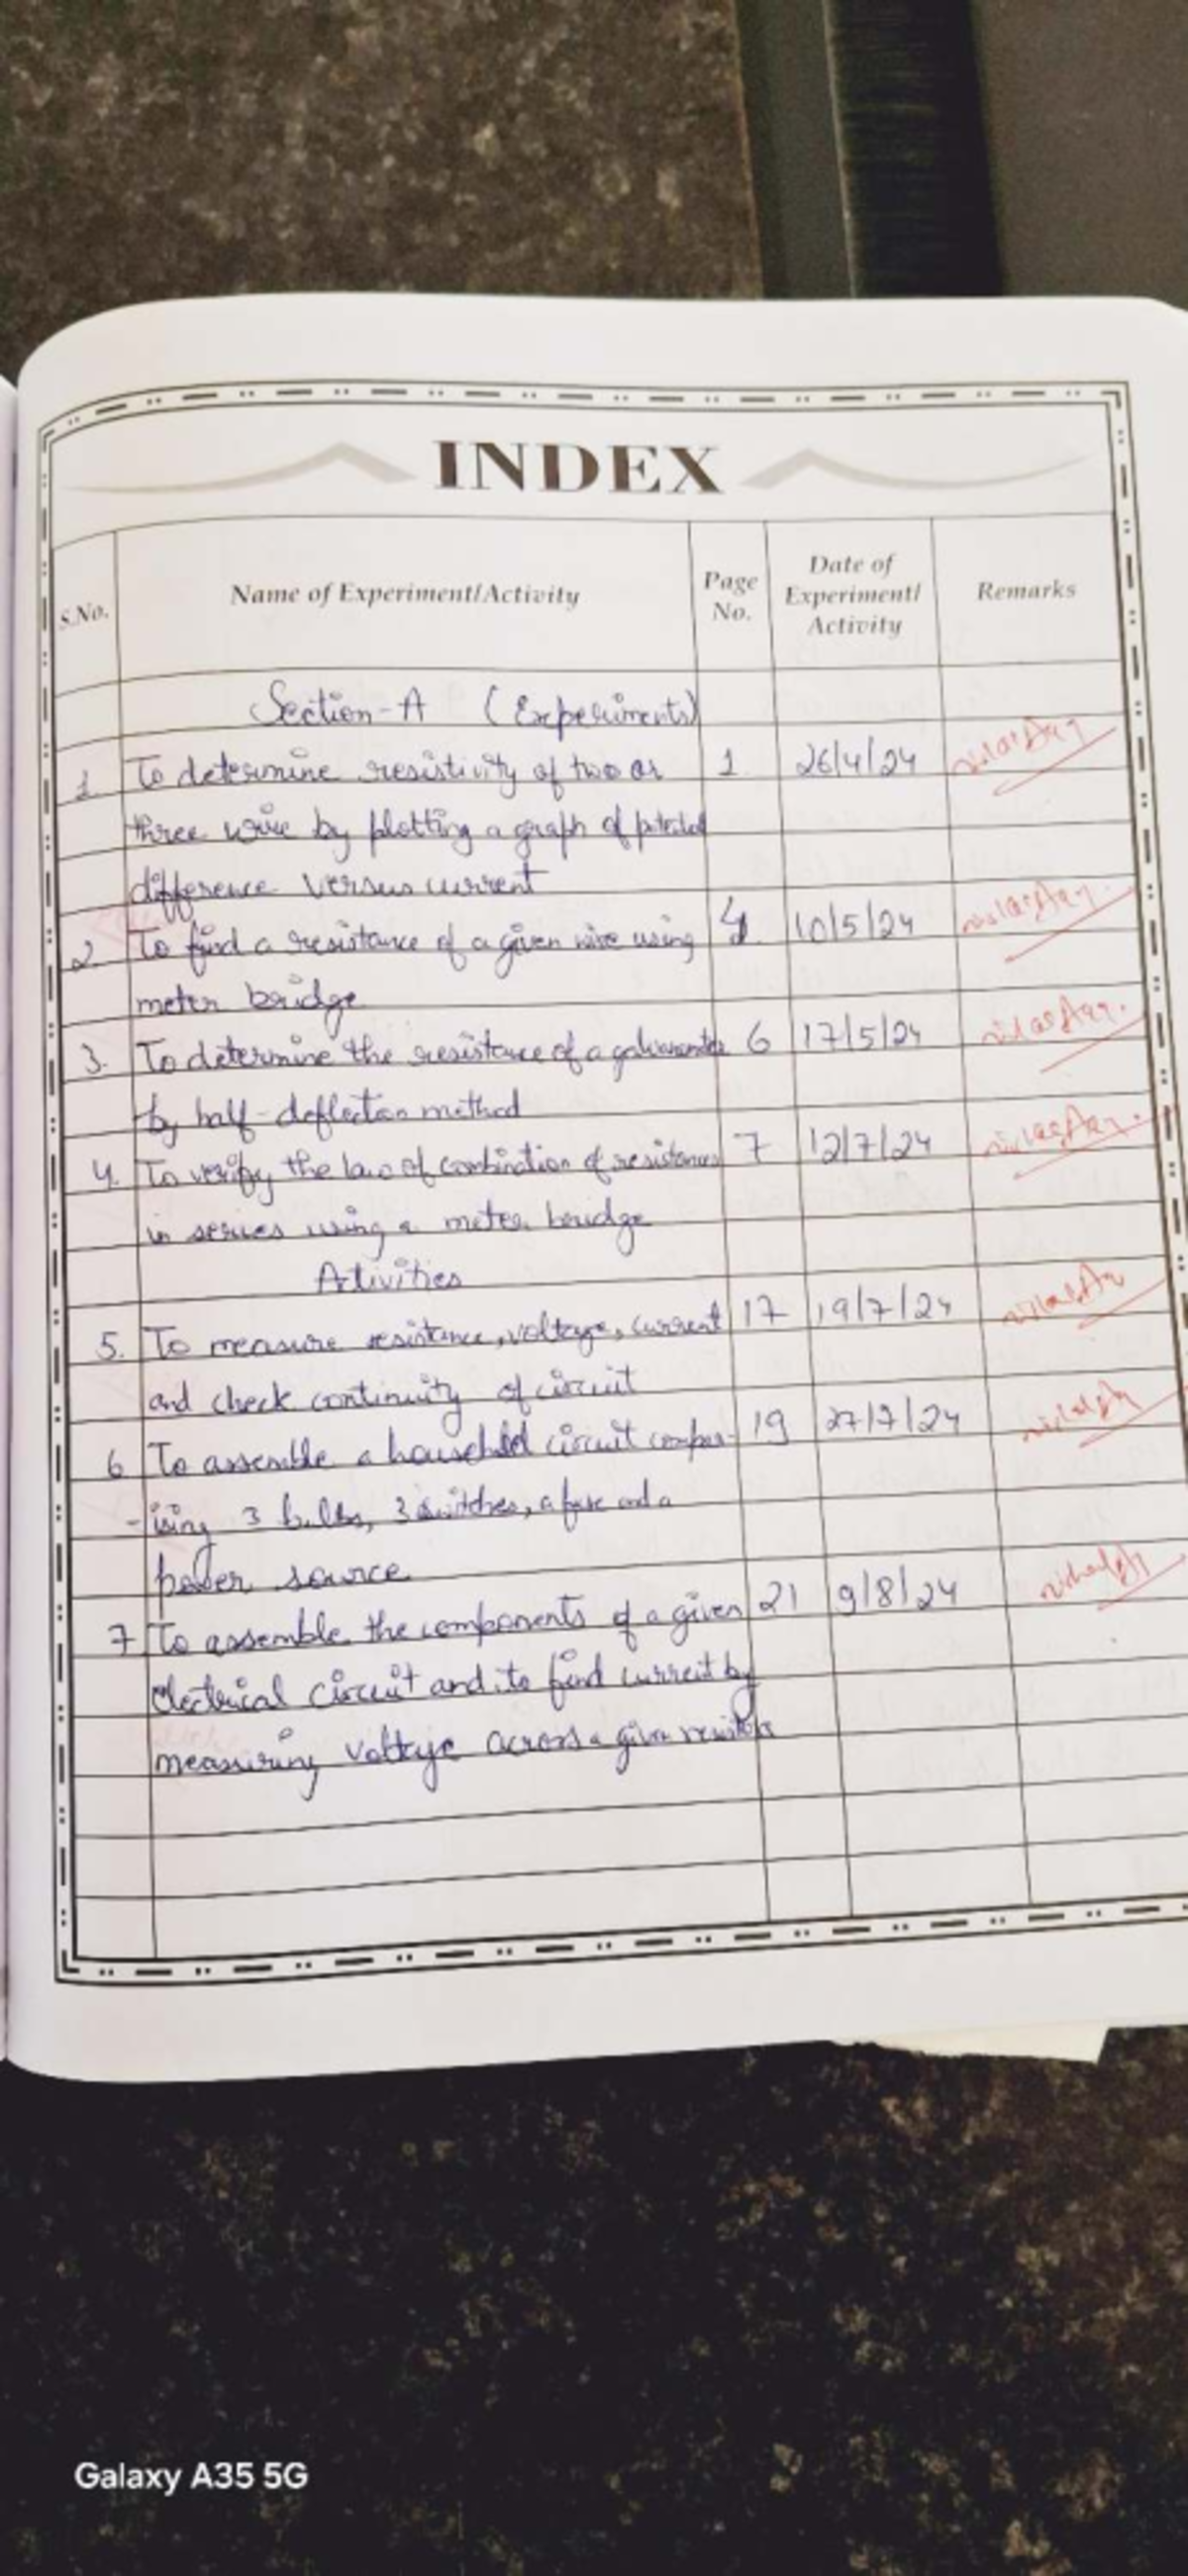 INDEX
S.No. Name of Experiment/Activity Page No. Date of Experiment/ Activity Remarks
Section-A (Experiments)
1. To determine resistivity of two or 1. 26/4/24
three wire by plotting a graph of
difference versus current
2. To find a resistance of a given wire using 4. 10/5/24
meter bridge
3. To determine the resistance of a 6 17/5/24
by half-deflection method
4. To verify the law of combination of resistances 7 12/7/24
in series using a meter bridge
Activities
5. To measure resistance, voltage, current 17 19/7/24
and check continuity of circuit
6 To assemble a household circuit compr- 19 27/7/24
-ising 3 bulbs, 3 switches, a fuse and a
power source
7 To assemble the components of a given 21 9/8/24
electrical circuit and to find current by
measuring voltage across a given
Galaxy A35 5G